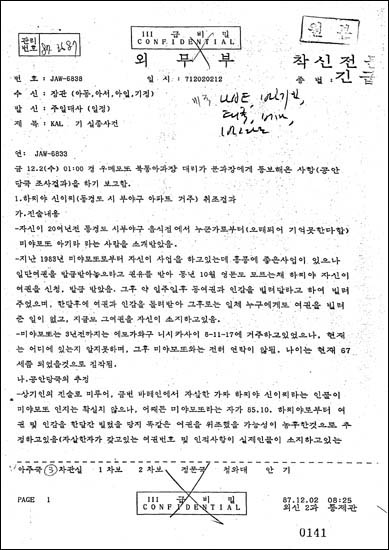 III 급 비 밀
CONFIDENTIAL
원 본
관리
번호
외 무 부
착신전
번 호 : JAW-6838
일 시 : 712020212
종 별 :
긴급
수 신 : 장관 (아동,아서,아일,기정)
발 신 : 주일대사 (일정)
제 목 : KAL 기 실종사건
UAE,
태국,
연: JAW-6833
금 12.2(수) 01:00 경 우메모토 북동아과장 대리가 문과장에게 통보해온 사항(공안
당국 조사결과)을 하기 보고함.
1.하찌야 신이찌(동경도 시부야구 아파트 거주) 취조결과
가.진술내용
-자신이 20여년전 동경도 시부야구 음식점에서 누군가로부터(오래되어 기억못한다함)
미야모도 아키라 라는 사람을 소개받았음.
-지난 1983년 미야모또로부터 자신이 사업을 하고있는데 홍콩에 좋은사업이 있으니
일반여권을 발급받아놓으라고 권유를 받아 동년 10월 영문도 모르는채 하찌야 자신이
여권을 신청, 발급 받았음. 그후 약 일주일후 동여권과 인감을 빌려달라고 하여 빌려
주었으며, 한달후에 여권과 인감을 돌려받아 그후로는 일체 누구에게도 여권을 빌려
준 일이 없고, 지금도 그여권을 자신이 소지하고있음.
-미야모또는 3년전까지는 에도가와구 니시카사이 5-11-17에 거주하고있었으나, 현재
는 어디에 있는지 알지못하며, 그후 미야모또와는 전혀 연락이 않됨. 나이는 현재 67
세쯤 되었을것으로 짐작됨.
나.공안당국의 추정
-상기인의 진술로 미루어, 금번 바레인에서 자살한 가짜 하찌야 신이찌라는 인물이
미야모또 인지는 확실치 않으나, 어쨌든 미야모또라는 자가 85.10. 하찌야로부터 여
권 및 인감을 한달간 빌렸을 당시 똑같은 여권을 위조했을 가능성이 농후한것으로 추
정하고있음(자살한자가 갖고있는 여권번호 및 인적사항이 실제인물이 소지하고있는
아주국 3 차관실 1 차보 2 차보 정문국 청와대 안 기
PAGE 1
III 급 비 밀
CONFIDENTIAL
87.12.02 08:25
외신 2과 통제관
0141